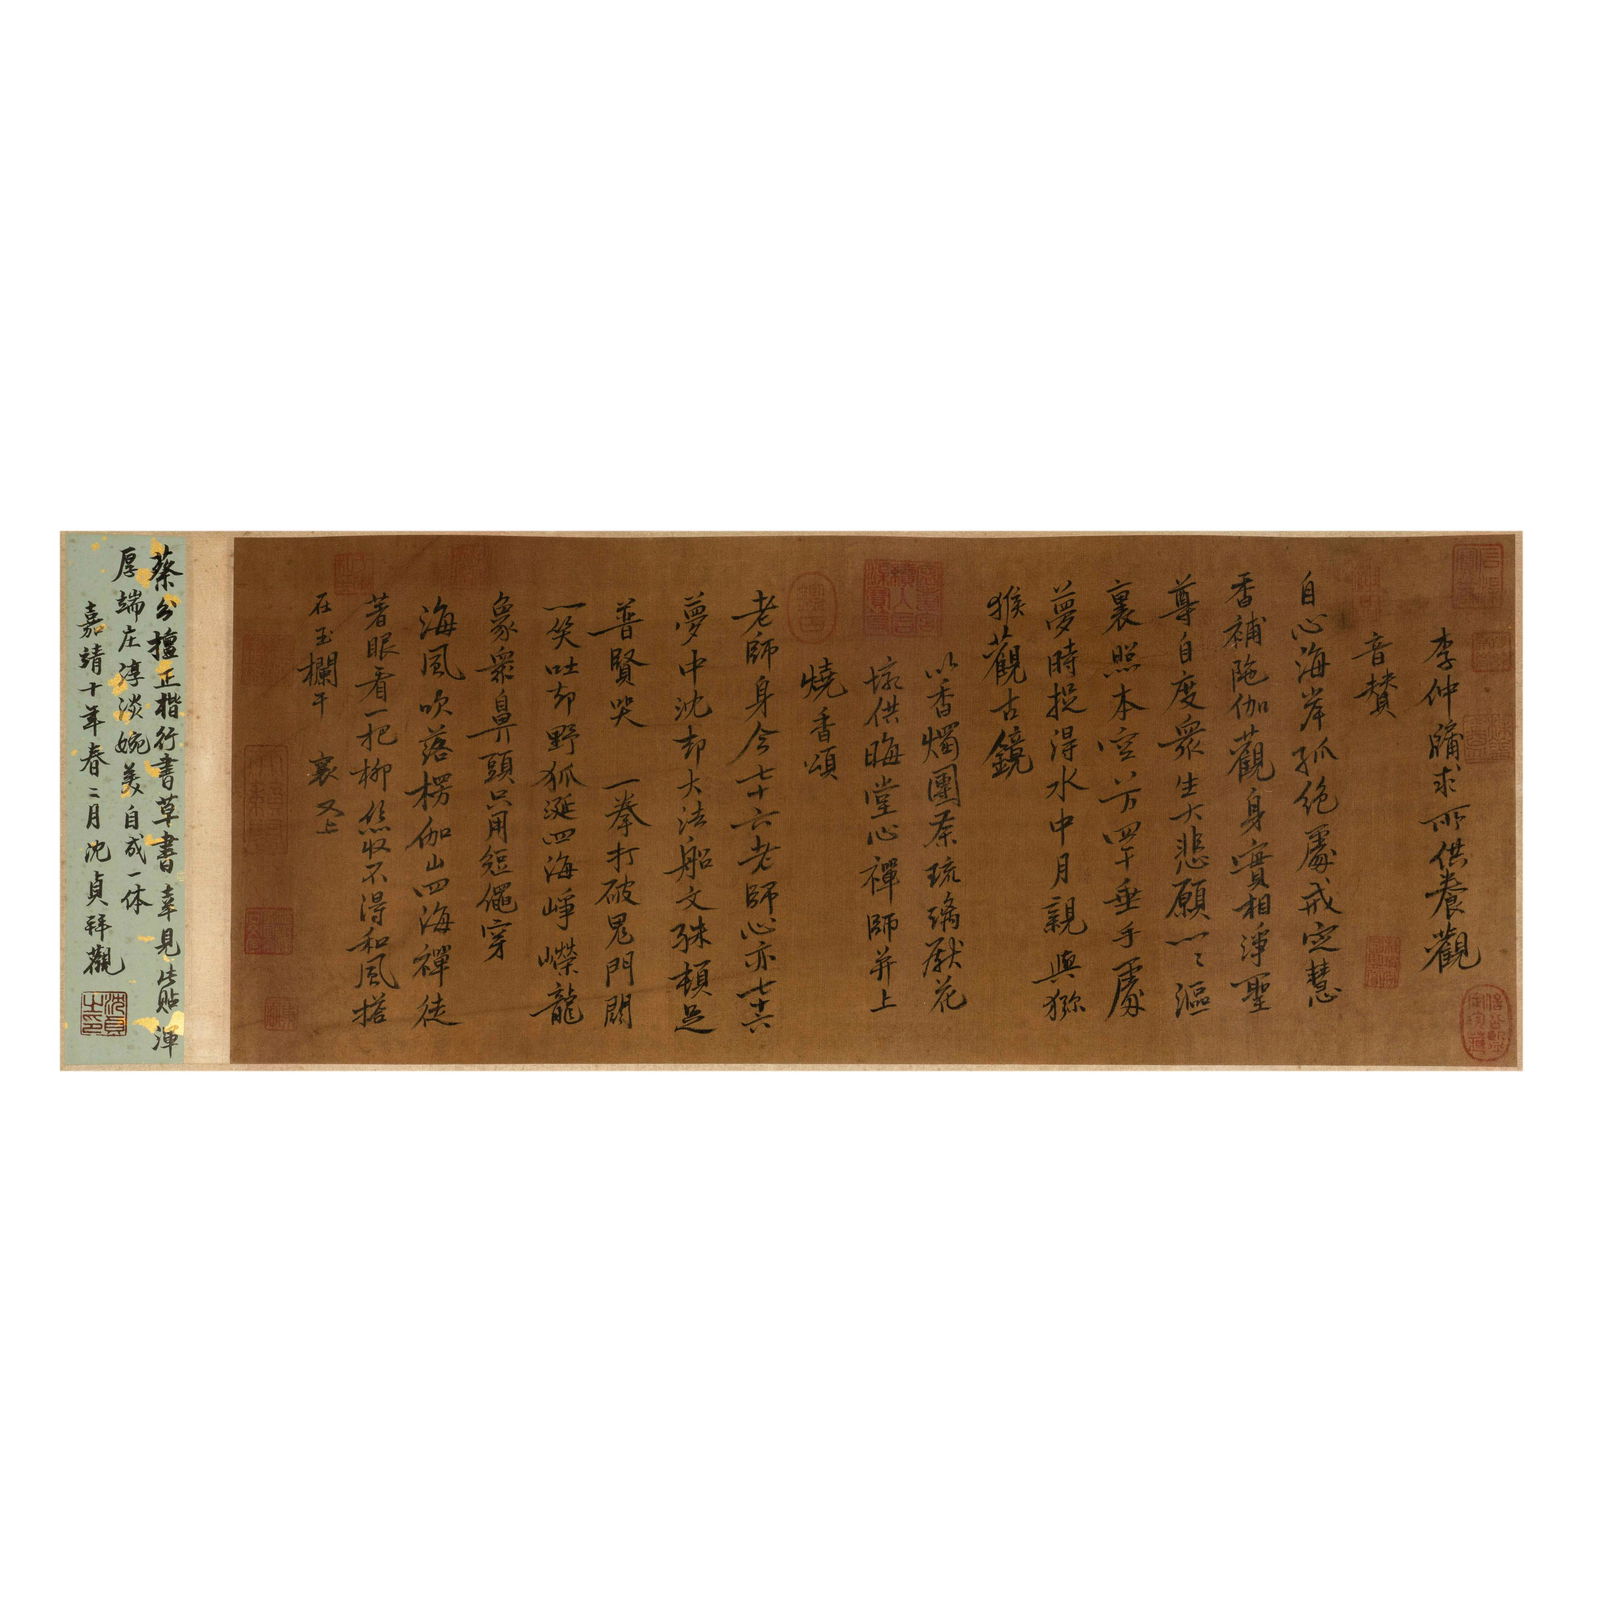 李仲牖求所供養觀
音賛
自心海岸孤絶處戒定慧
香補陁伽觀身實相淨聖
尊自度衆生大悲願一々漚
裏照本空芳四千垂手處
夢時捉得水中月親與猕
猴觀古鏡
以香燭團茶琉璃獻花
垸供晦堂心禪師并上
燒香頌
老師身今七十六老師心亦七十六
夢中沈却大法船文殊頓足
普賢哭 一拳打破鬼門關
一笑吐却野狐涎四海崢嶸龍
象衆鼻頭只用短繩穿
海風吹落楞伽山四海禪徒
著眼看一把柳丝收不得和風搭
在玉欄干 襄 又上
蔡公擅正楷行書草書幸見此貼渾
厚端庄淳淡婉美自成一体
嘉靖十年春二月沈貞拜觀
沈貞之印